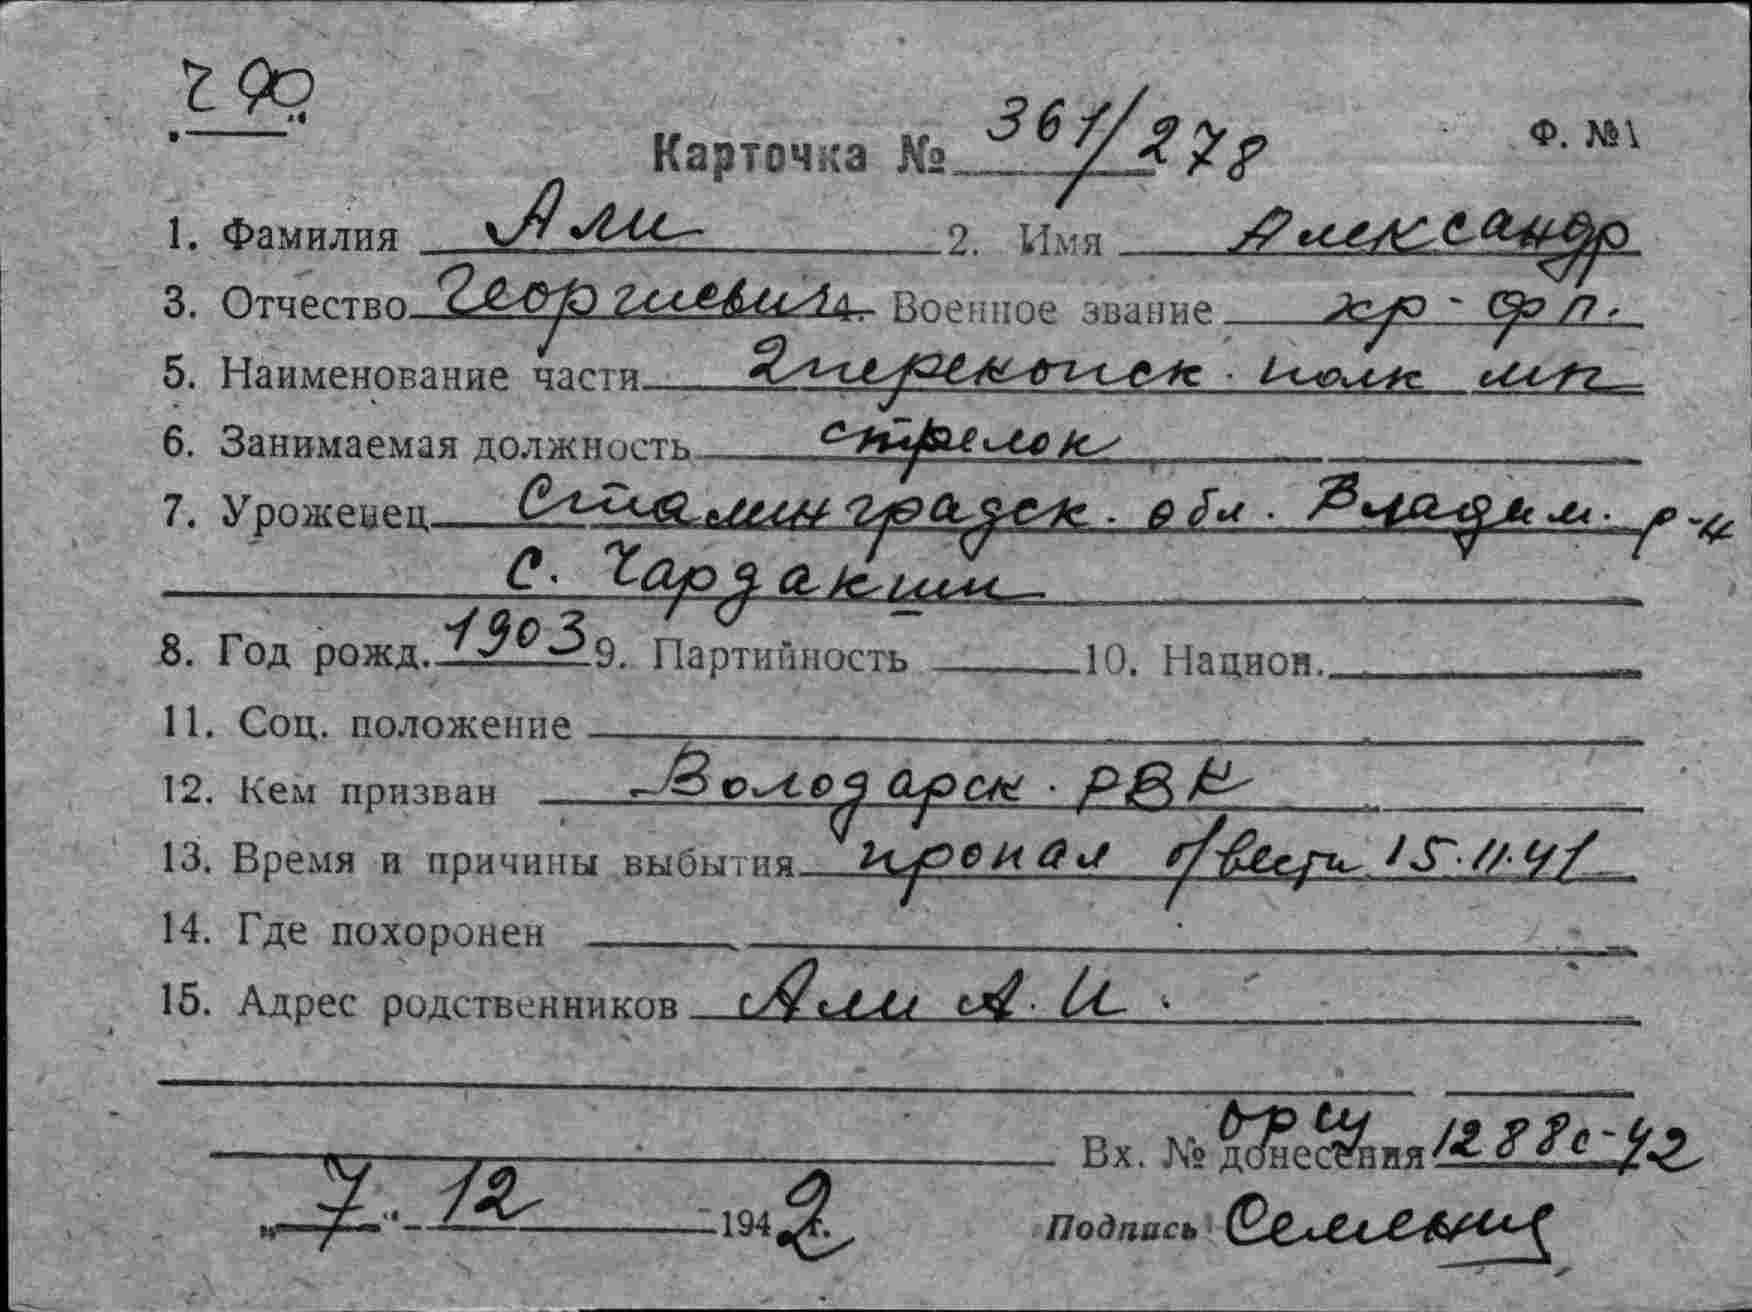 ч ФО
Карточка № 361/278 Ф. №1
1. Фамилия Али 2. Имя Александр
3. Отчество Георгиевич 4. Военное звание кр-фл.
5. Наименование части 2 перекопск. полк мп
6. Занимаемая должность стрелок
7. Уроженец Сталинградск. обл. Владим. р-н
с. Чардакши
8. Год рожд. 1903 9. Партийность 10. Национ.
11. Соц. положение
12. Кем призван Володарск. РВК
13. Время и причины выбытия пропал б/вести 15.11.41
14. Где похоронен
15. Адрес родственников Али А. И.
орсу
Вх. № донесения 1288с-42
„7“ 12 1942 г. Подпись